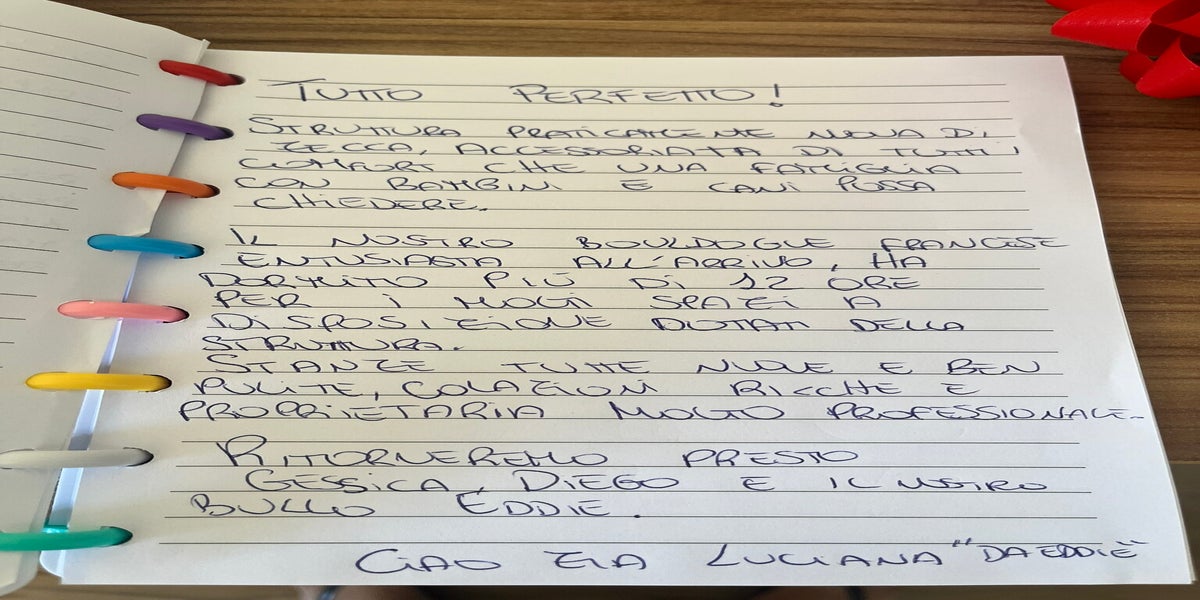 TUTTO PERFETTO!
STRUTTURA PRATICAMENTE NUOVA DI
ZECCA, ACCESSORIATA DI TUTTI I
COMFORT CHE UNA FAMIGLIA
CON BAMBINI E CANI POSSA
CHIEDERE.
IL NOSTRO BOULDOGUE FRANCESE
ENTUSIASTA ALL'ARRIVO, HA
DORMITO PIÙ DI 12 ORE
PER I MOLTI SPAZI A
DISPOSIZIONE DOTATI DELLA
STRUTTURA.
STANZE TUTTE NUOVE E BEN
PULITE, COLAZIONI RICCHE E
PROPRIETARIA MOLTO PROFESSIONALE.
RITORNEREMO PRESTO
GESSICA, DIEGO E IL NOSTRO
BULLO EDDIE.
CIAO ZIA LUCIANA "DA EDDIE"